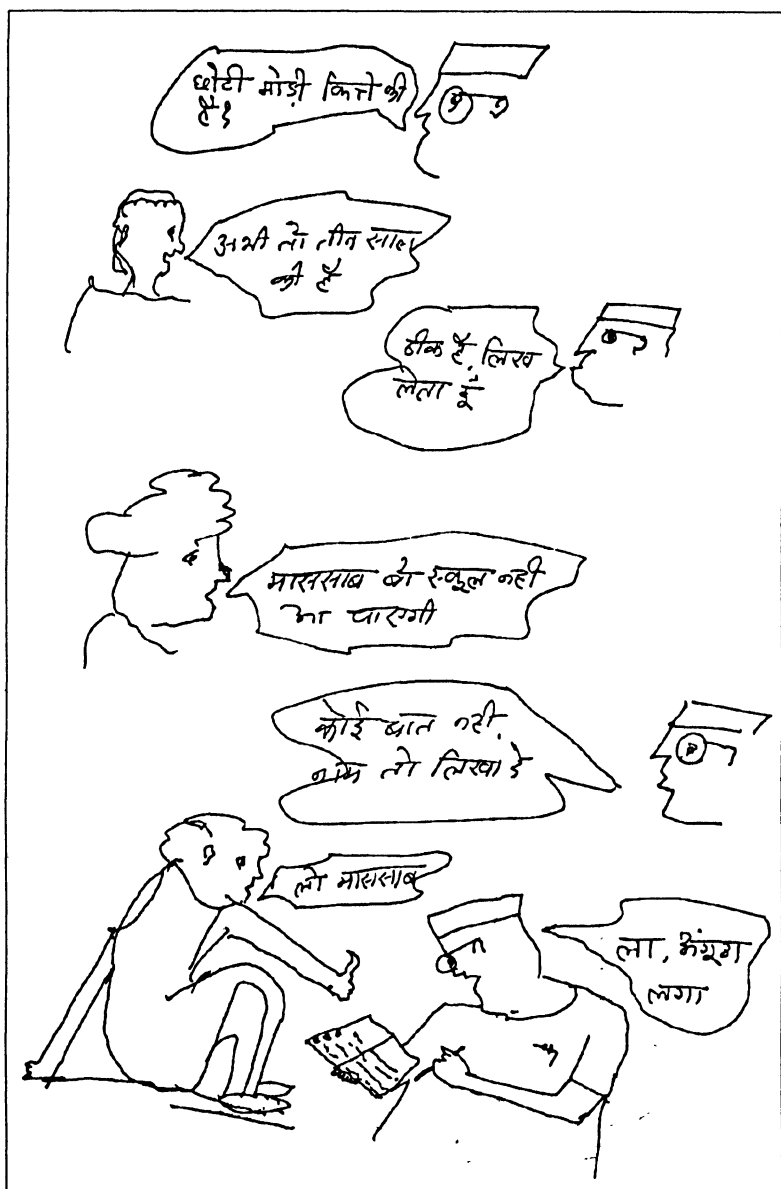 छोटी मोड़ी कित्ते की
है?
अभी तो तीन साल
की है
ठीक है, लिख
लेता हूँ
माससाब बो स्कूल नहीं
आ पाएगी
कोई बात नहीं,
नाम तो लिखा दे
लो माससाब
ला, अंगूठा
लगा